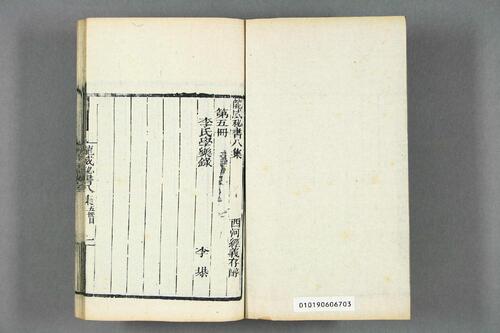 龍威秘書八集
西河經義存醇
第五冊
李氏學樂錄
李塨
龍威秘書八集
五冊目
一
010190606703